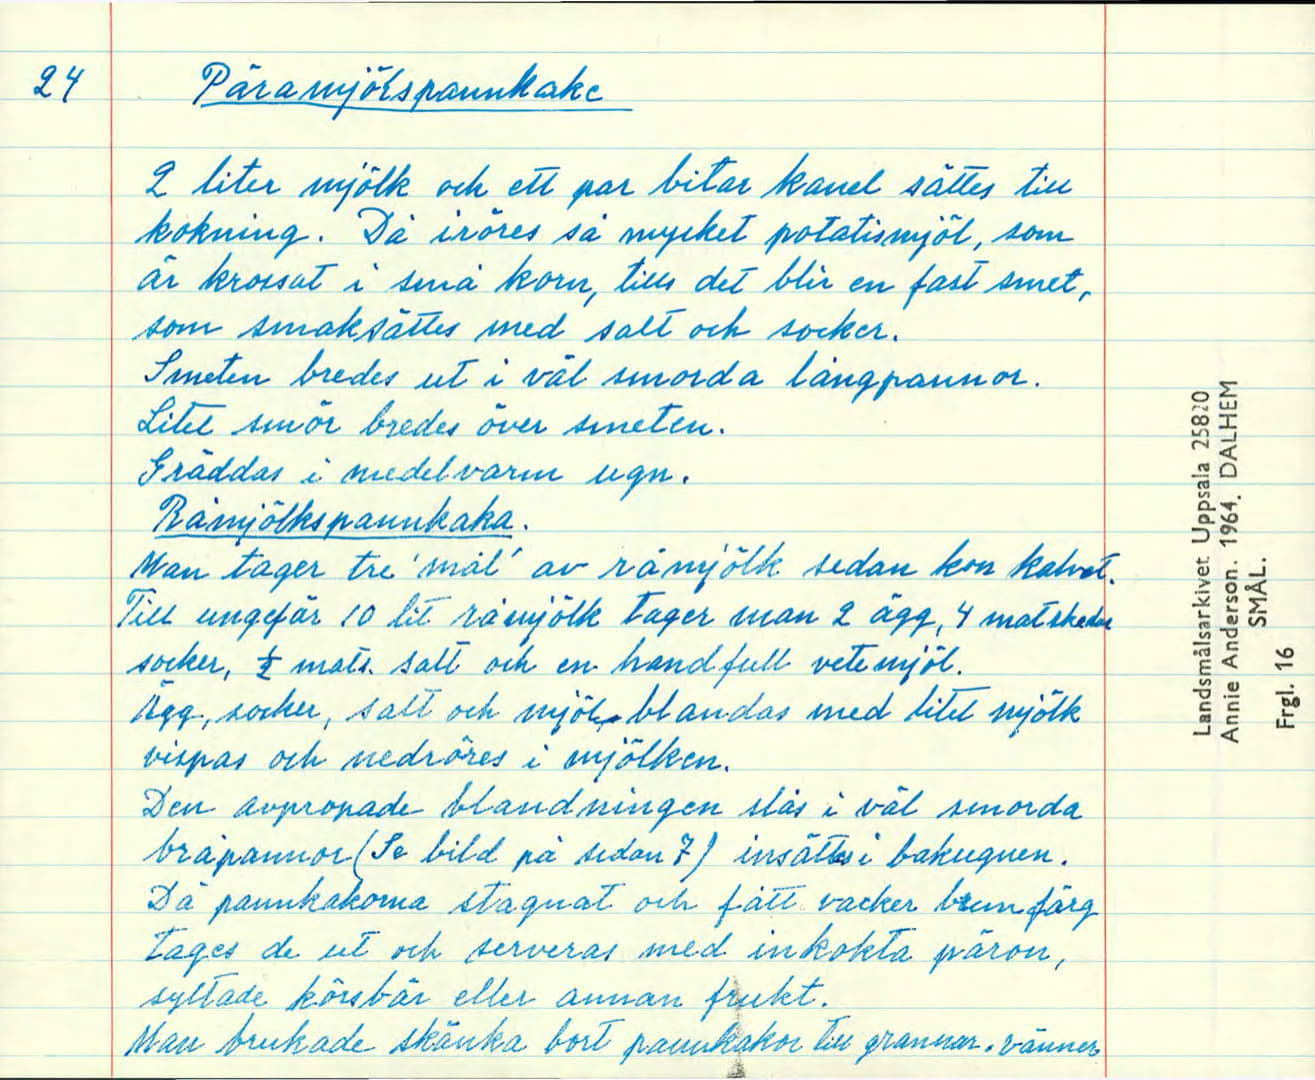 24
Päramjölspannkake
2 liter mjölk och ett par bitar kanel sättes till
kokning. Då iröres så mycket potatismjöl, som
är krossat i små korn, tills det blir en fast smet,
som smaksättes med salt och socker.
Smeten bredes ut i väl smorda långpannor.
Litet smör bredes över smeten.
Gräddas i medelvarm ugn.
Råmjölkspannkaka.
Man tager tre 'mål' av råmjölk sedan kon kalvat.
Till ungefär 10 lit råmjölk tager man 2 ägg, 4 matskedar
socker, ½ mats. salt och en handfull vetemjöl.
Ägg, socker, salt och mjöl, blandas med litet mjölk
vispas och nedröres i mjölken.
Den avpropade blandningen slås i väl smorda
bråpannor (Se bild på sedan 7) insättes i bakugnen.
Då pannkakorna stagnat och fått vacker brun färg
tages de ut och serveras med inkokta päron,
syltade körsbär eller annan frukt.
Man brukade skänka bort pannkakor till grannar. vänner
Landsmålsarkivet Uppsala 25820
Annie Anderson. 1964. DALHEM
SMÅL.
Frgl. 16